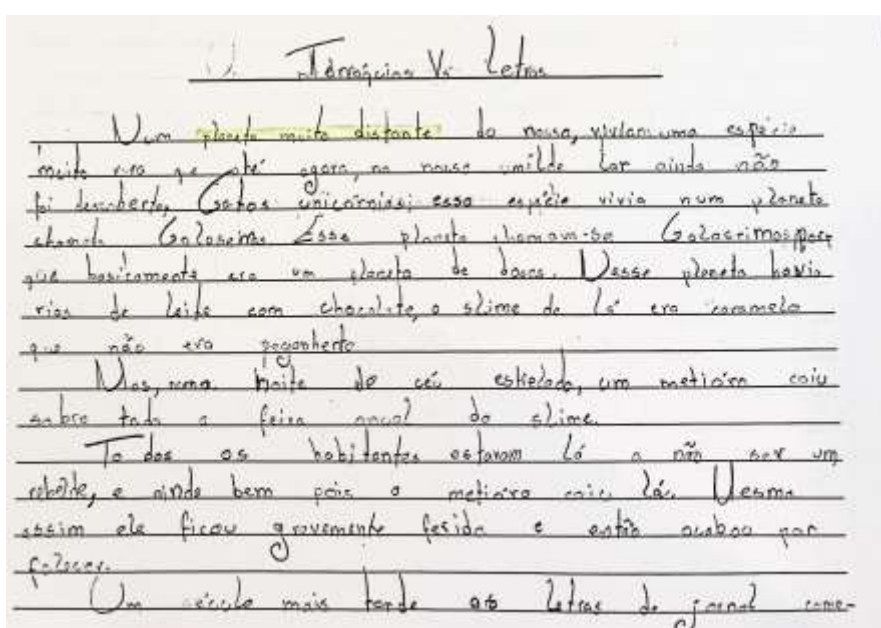 Vs Letras
Num planeta muito distante do nosso, viviam uma espécie
muito rara que até agora, no nosso umilde lar ainda não
foi descoberta, Gatos unicórnios; essa espécie vivia num planeta
chamado Esse planeta chamava-se
que basicamente era um planeta de doces. Nesse planeta havia
rios de leite com chocolate, o slime de lá era caramelo
que não era peganhento
Mas, numa noite de céu estrelado, um metioro caiu
sobre toda a feira anual do slime.
Todos os habitantes estavam lá a não ser um
rebelde, e ainda bem pois o metioro caiu lá. Mesmo
assim ele ficou gravemente ferido e então acabou por
falecer.
Um século mais tarde as letras de jornal come-